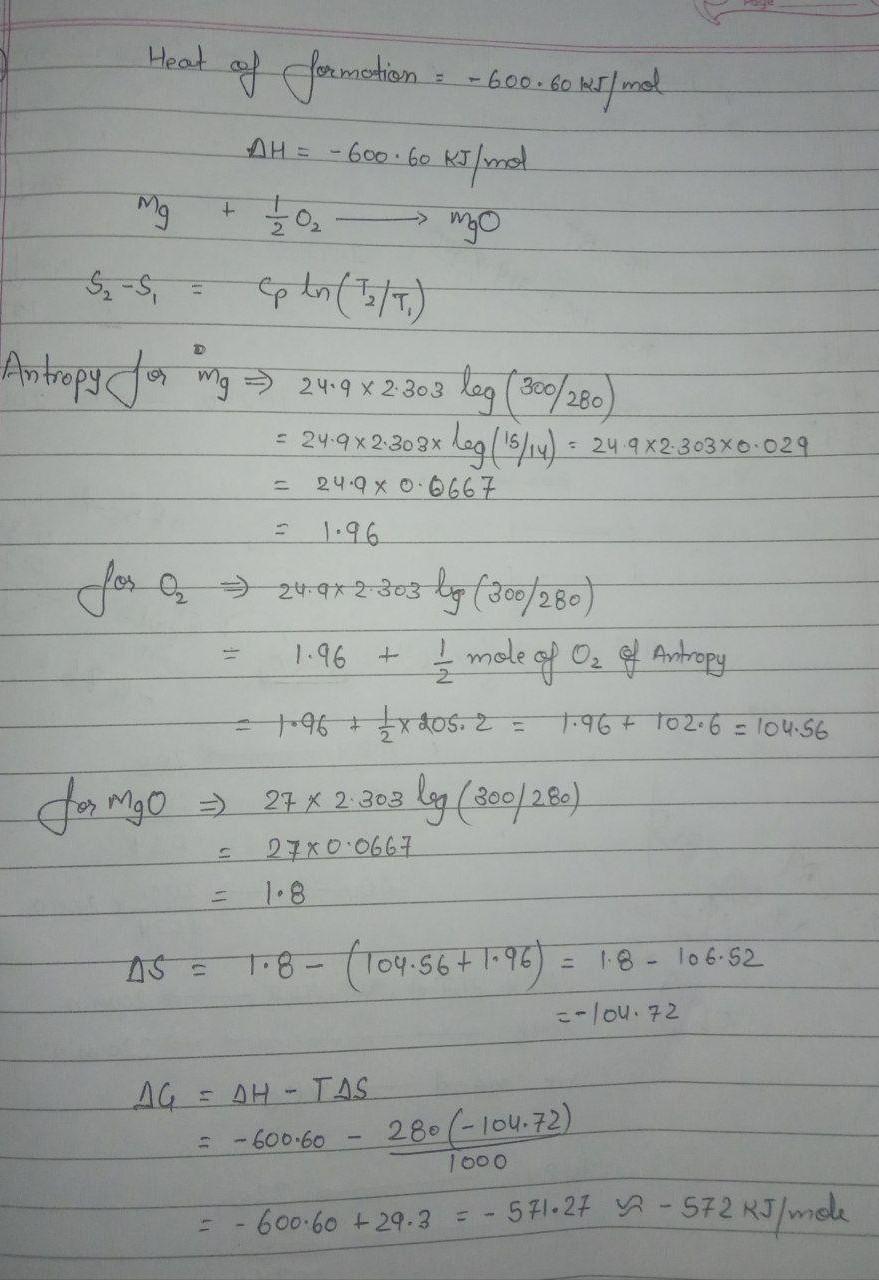 Page
Heat of formation = -600.60 KJ/mol
ΔH = -600.60 KJ/mol
Mg + 1/2 O₂ ⟶ MgO
S₂-S₁ = Cp ln(T₂/T₁)
Antropy for Mg ⇒ 24.9 x 2.303 log (300/280)
= 24.9x2.303x log(15/14) = 24.9x2.303x0.029
= 24.9 x 0.0667
= 1.96
for O₂ ⇒ 24.9x 2.303 log (300/280)
= 1.96 + 1/2 mole of O₂ of Antropy
= 1.96 + 1/2 x 205.2 = 1.96 + 102.6 = 104.56
for MgO ⇒ 27 x 2.303 log (300/280)
= 27x0.0667
= 1.8
ΔS = 1.8 - (104.56+1.96) = 1.8 - 106.52
= -104.72
ΔG = ΔH - TΔS
= -600.60 - 280(-104.72)/1000
= -600.60 + 29.3 = -571.27 ≈ -572 KJ/mole